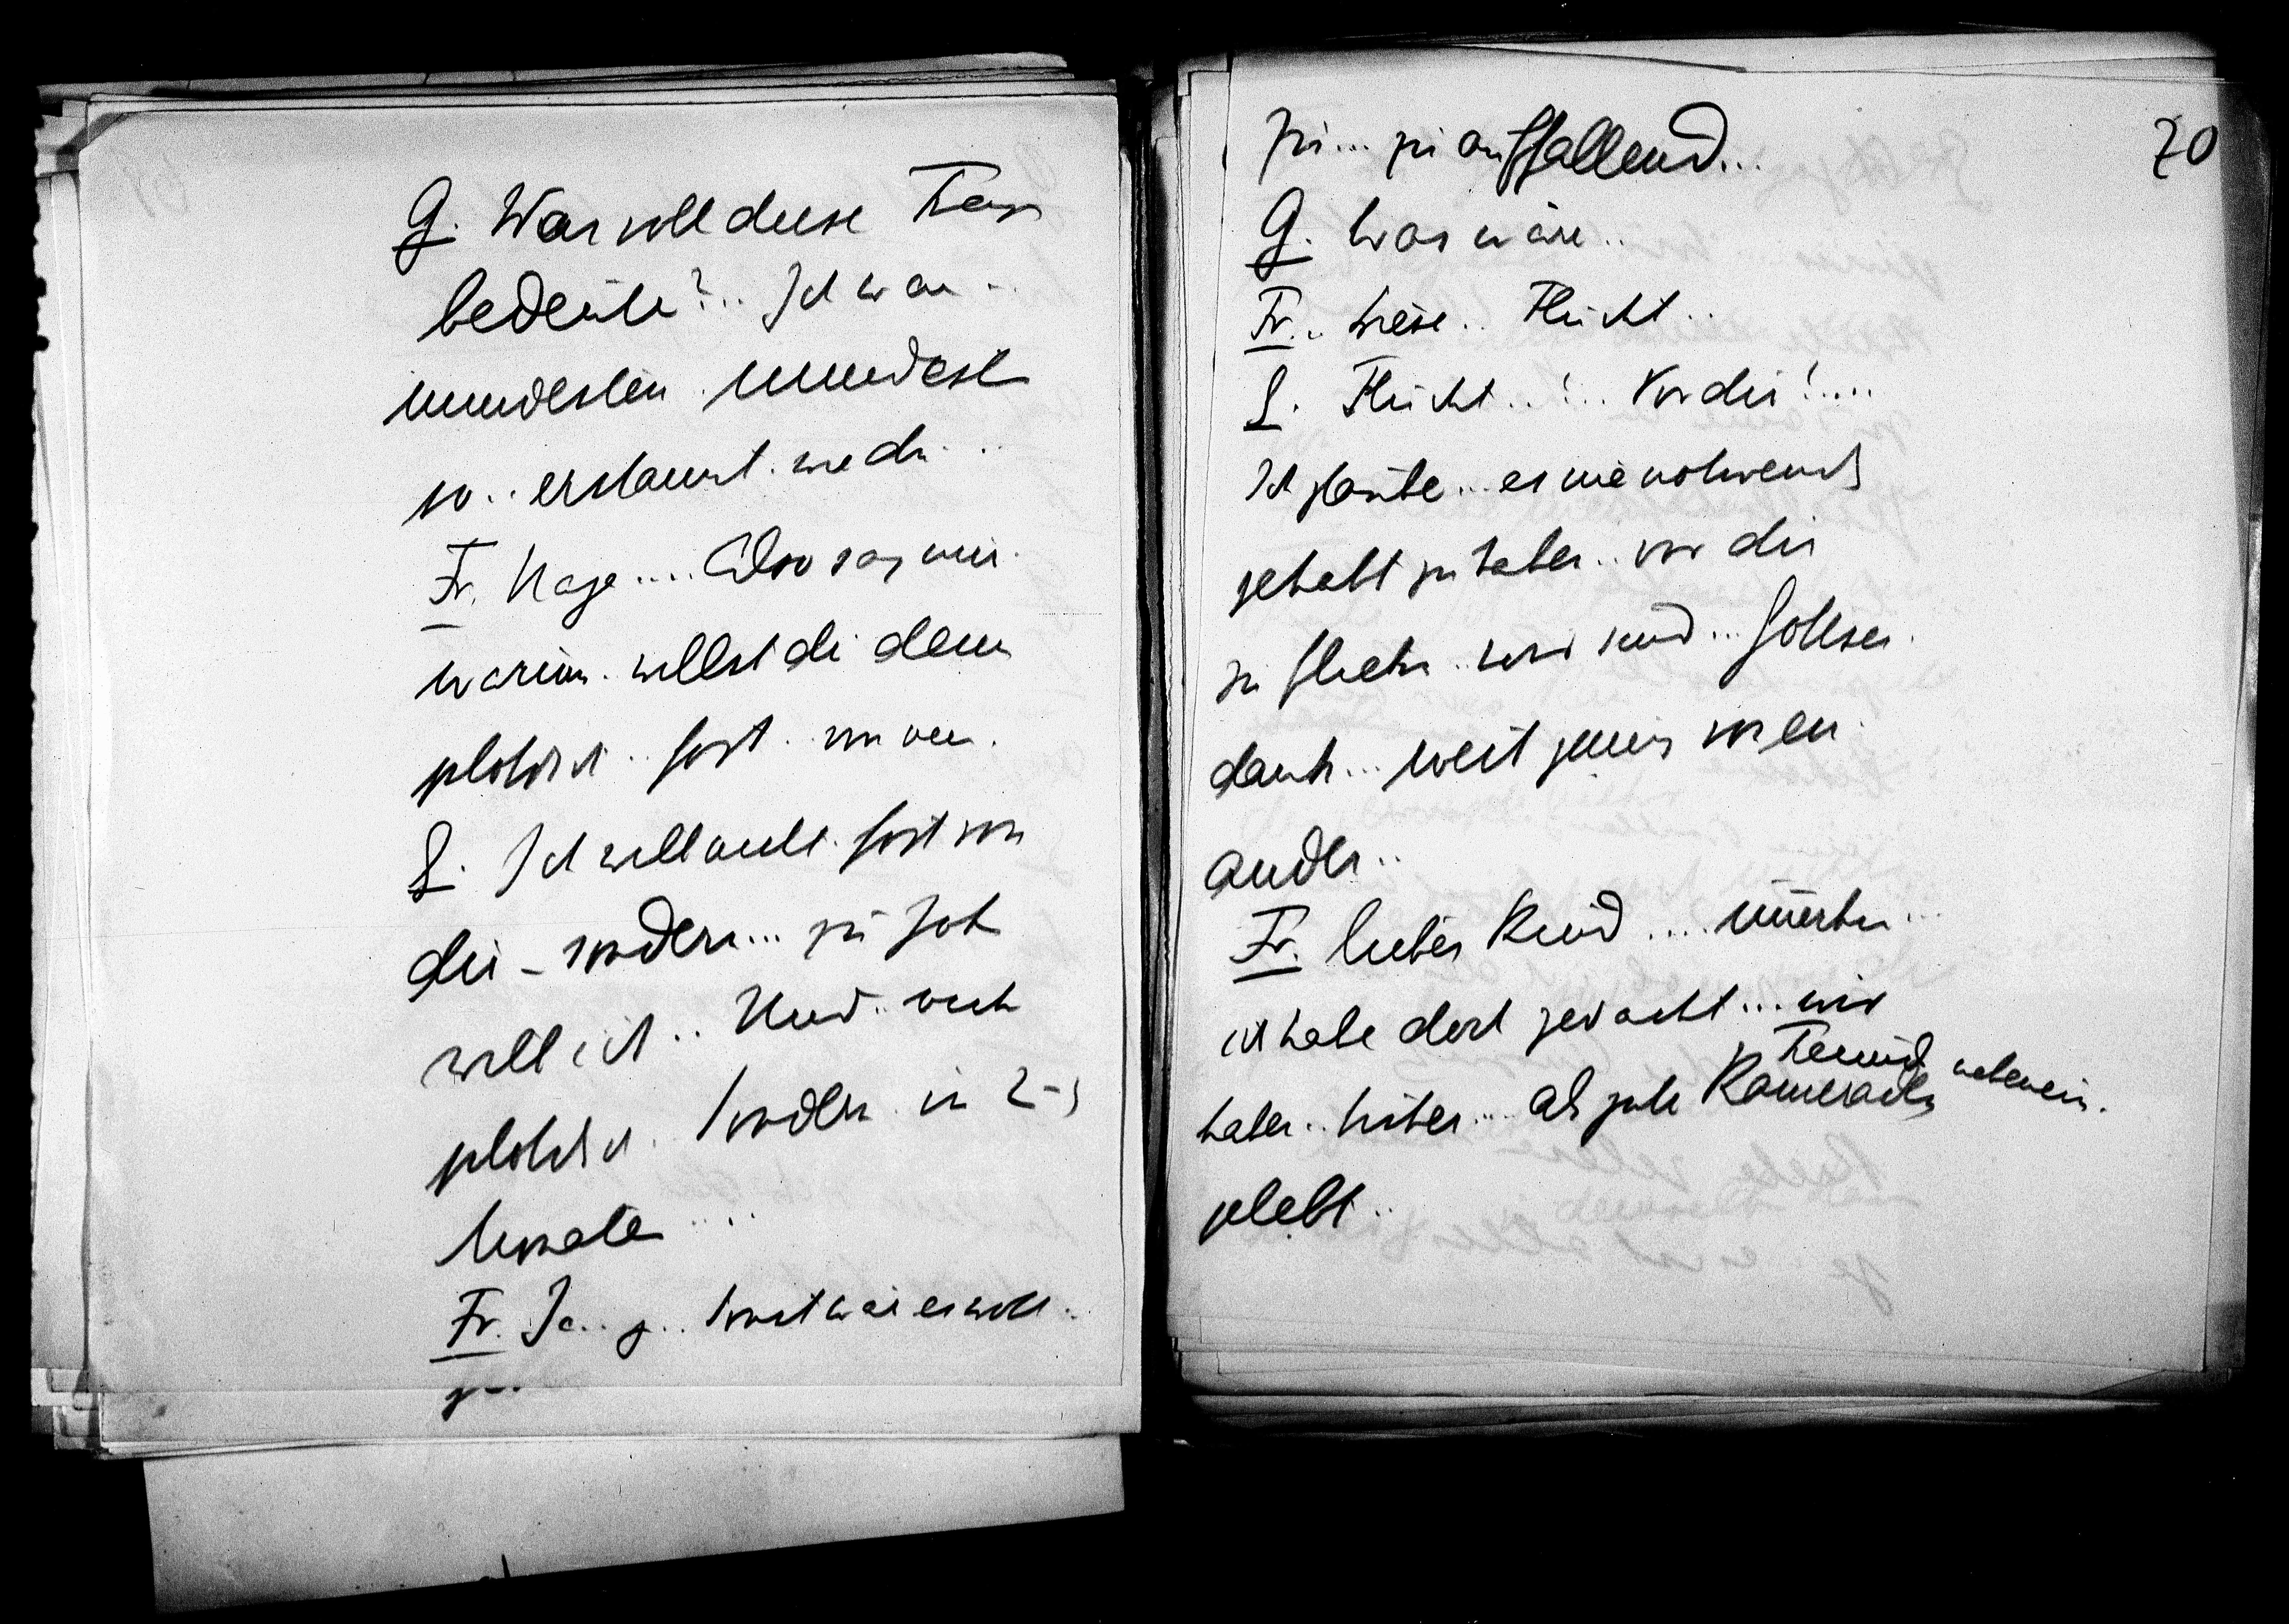 G. Was soll diese Frage
bedeuten?.. Ich war ..
mindestens mindest
so.. erstaunt wie du ..
Fr. Nage.... Also sag mir.
warum. willst du denn
plötzlich.. fort. von
G. Ich will nicht. fort von
dir – sondern... zu
will ich.. Und.. nicht
plötzlich. sondern in 2-3
Monaten ....
Fr. Ja.. ja.. sonst wär es wohl..
zu..
70
zu... zu auffallend...
G. Was wäre..
Fr... diese.. Flucht..
G. Flucht..!.. Vor dir!....
Ich glaube... es nie notwendig
gehabt zu haben.. vor dir
zu fliehen.. wir sind... Gottsei.
dank... weit genug von ein
ander..
Fr. liebes Kind .... immerhin...
ich habe doch gedacht... wir
haben.. bisher.... als gute Kameraden
Freunde nebenein.
gelebt..